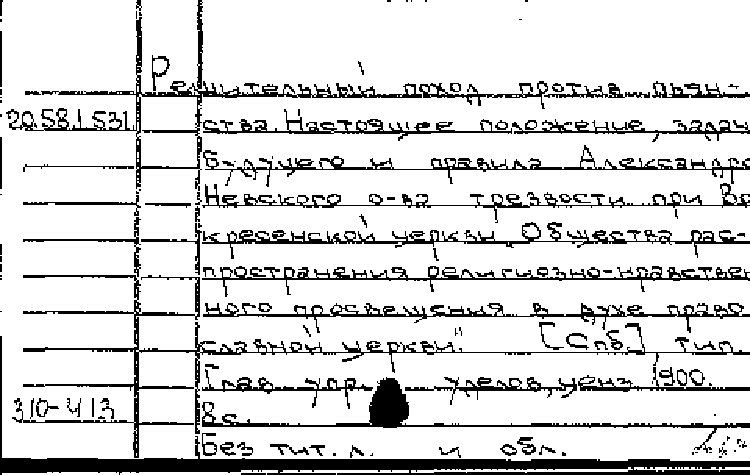 Решительный поход против пьян-
20.58.1.531
ства. Настоящее положение, задач
будущего и правила Александро
Невского о-ва трезвости при Во
кресенской церкви „Общества рас-
пространения религиозно-нравствен
ного просвещения в духе право
славной церкви." [Спб.] тип.
Глав. упр. уделов, ценз. 1900.
310-413
8с.
Без тит. л. и обл.